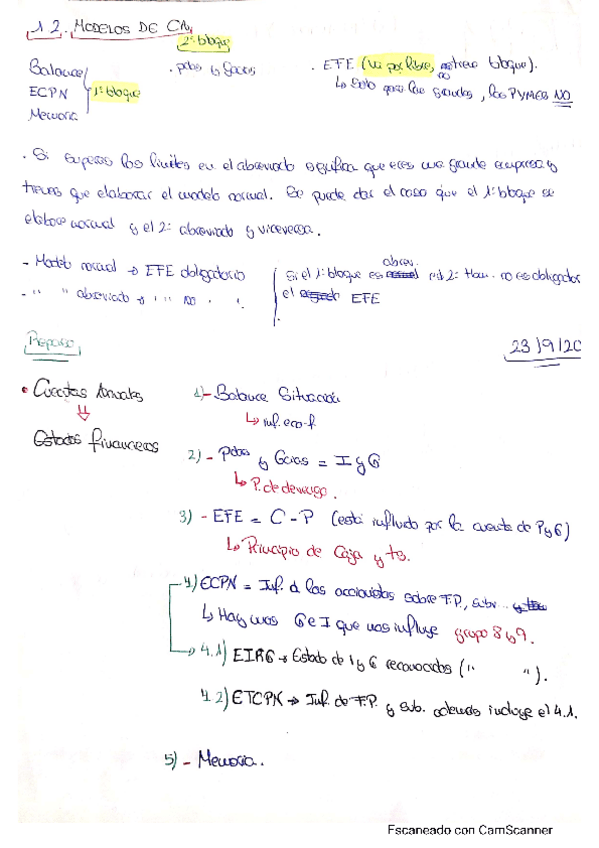 1.2. MODELOS DE CA
2º bloque
Balance
ECPN
Memoria
1º bloque
· pdas y Gcias
· EFE (va por libre, no tiene bloque).
↳ Solo para las grandes, las PYMES NO
· Si superas los límites en el abreviado significa que eres una grande empresa y
tienes que elaborar el modelo normal. Se puede dar el caso que el 1º bloque se
elabore normal y el 2º abreviado y viceversa.
- Modelo normal → EFE obligatorio
- " " abreviado → " " no " ".
Si el 1º bloque es abrev. el 2º no es obligador
el EFE
Repaso
23/9/20
• Cuentas Anuales
⇓
Estados financieros
1)- Balance Situación
↳ inf. eco-f.
2)- Pdas y Gcias = I y G
↳ P. de devengo.
3) - EFE = C - P (está influido por la cuenta de PyG)
↳ Principio de Caja y ts.
4) ECPN = Inf. a los accionistas sobre F.P., subv...
↳ Hay unos G e I que nos influye grupo 8 y 9.
4.1) EIRG → Estado de I y G reconocidos (" ").
4.2) ETCPN → Inf. de F.P. y sub. además incluye el 4.1.
5) - Memoria.
Escaneado con CamScanner